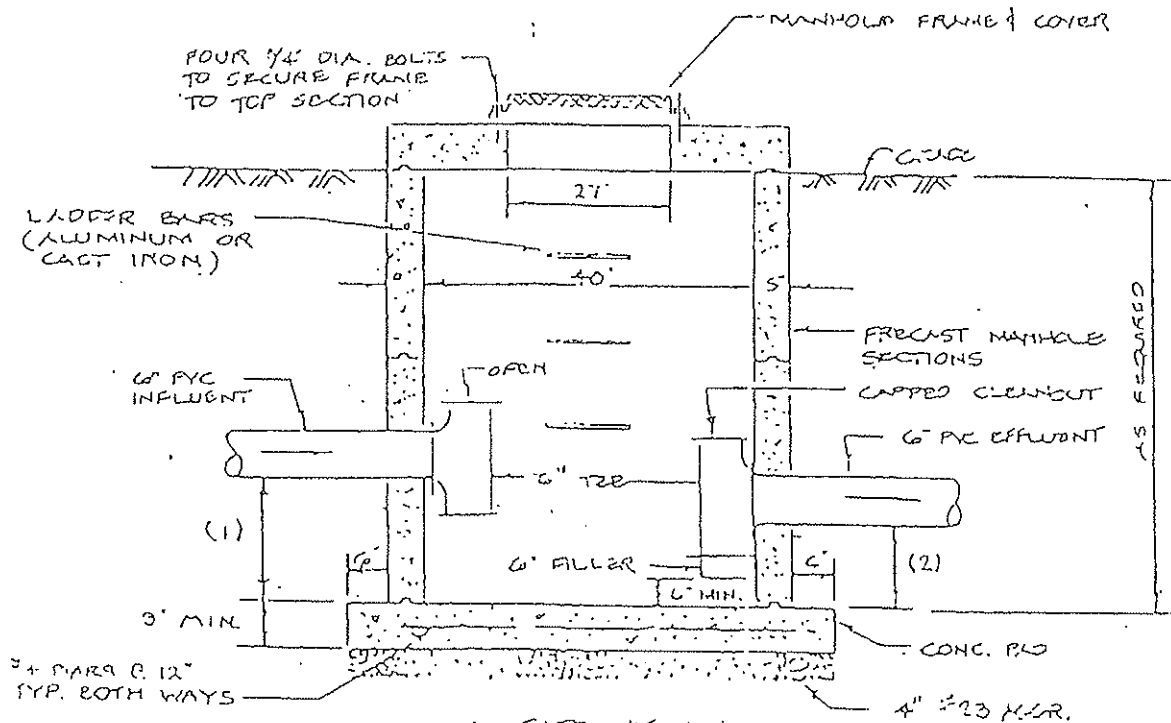 MANHOLD FRAME & COVER
FOUR 3/4" DIA. BOLTS
TO SECURE FRAME
TO TOP SECTION
27"
LADDER BARS
(ALUMINUM OR
CAST IRON)
40"
5"
PRECAST MANHOLE
SECTIONS
AS REQUIRED
OPEN
6" PVC
INFLUENT
CAPPED CLEANOUT
6" PVC EFFLUENT
6" TEE
(1)
(2)
6"
6" FILLER
6" MIN.
6"
9" MIN.
CONC. PAD
#4 BARS @ 12"
TYP. BOTH WAYS
4" #23